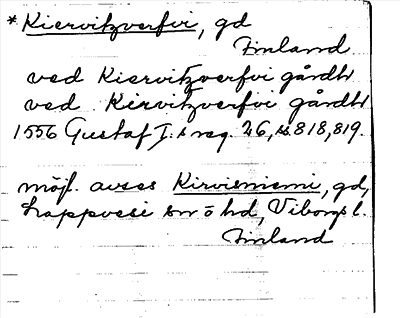 *Kiervitzverfvi, gd
Finland
ved Kiervitzverfvi gårdh
ved Kirvitzverfvi gårdh
1556 Gustaf I:s reg. 26, s 818, 819.
möjl. avses Kirvisniemi, gd,
Lappvesi sn o hd, Viborgs l.
Finland